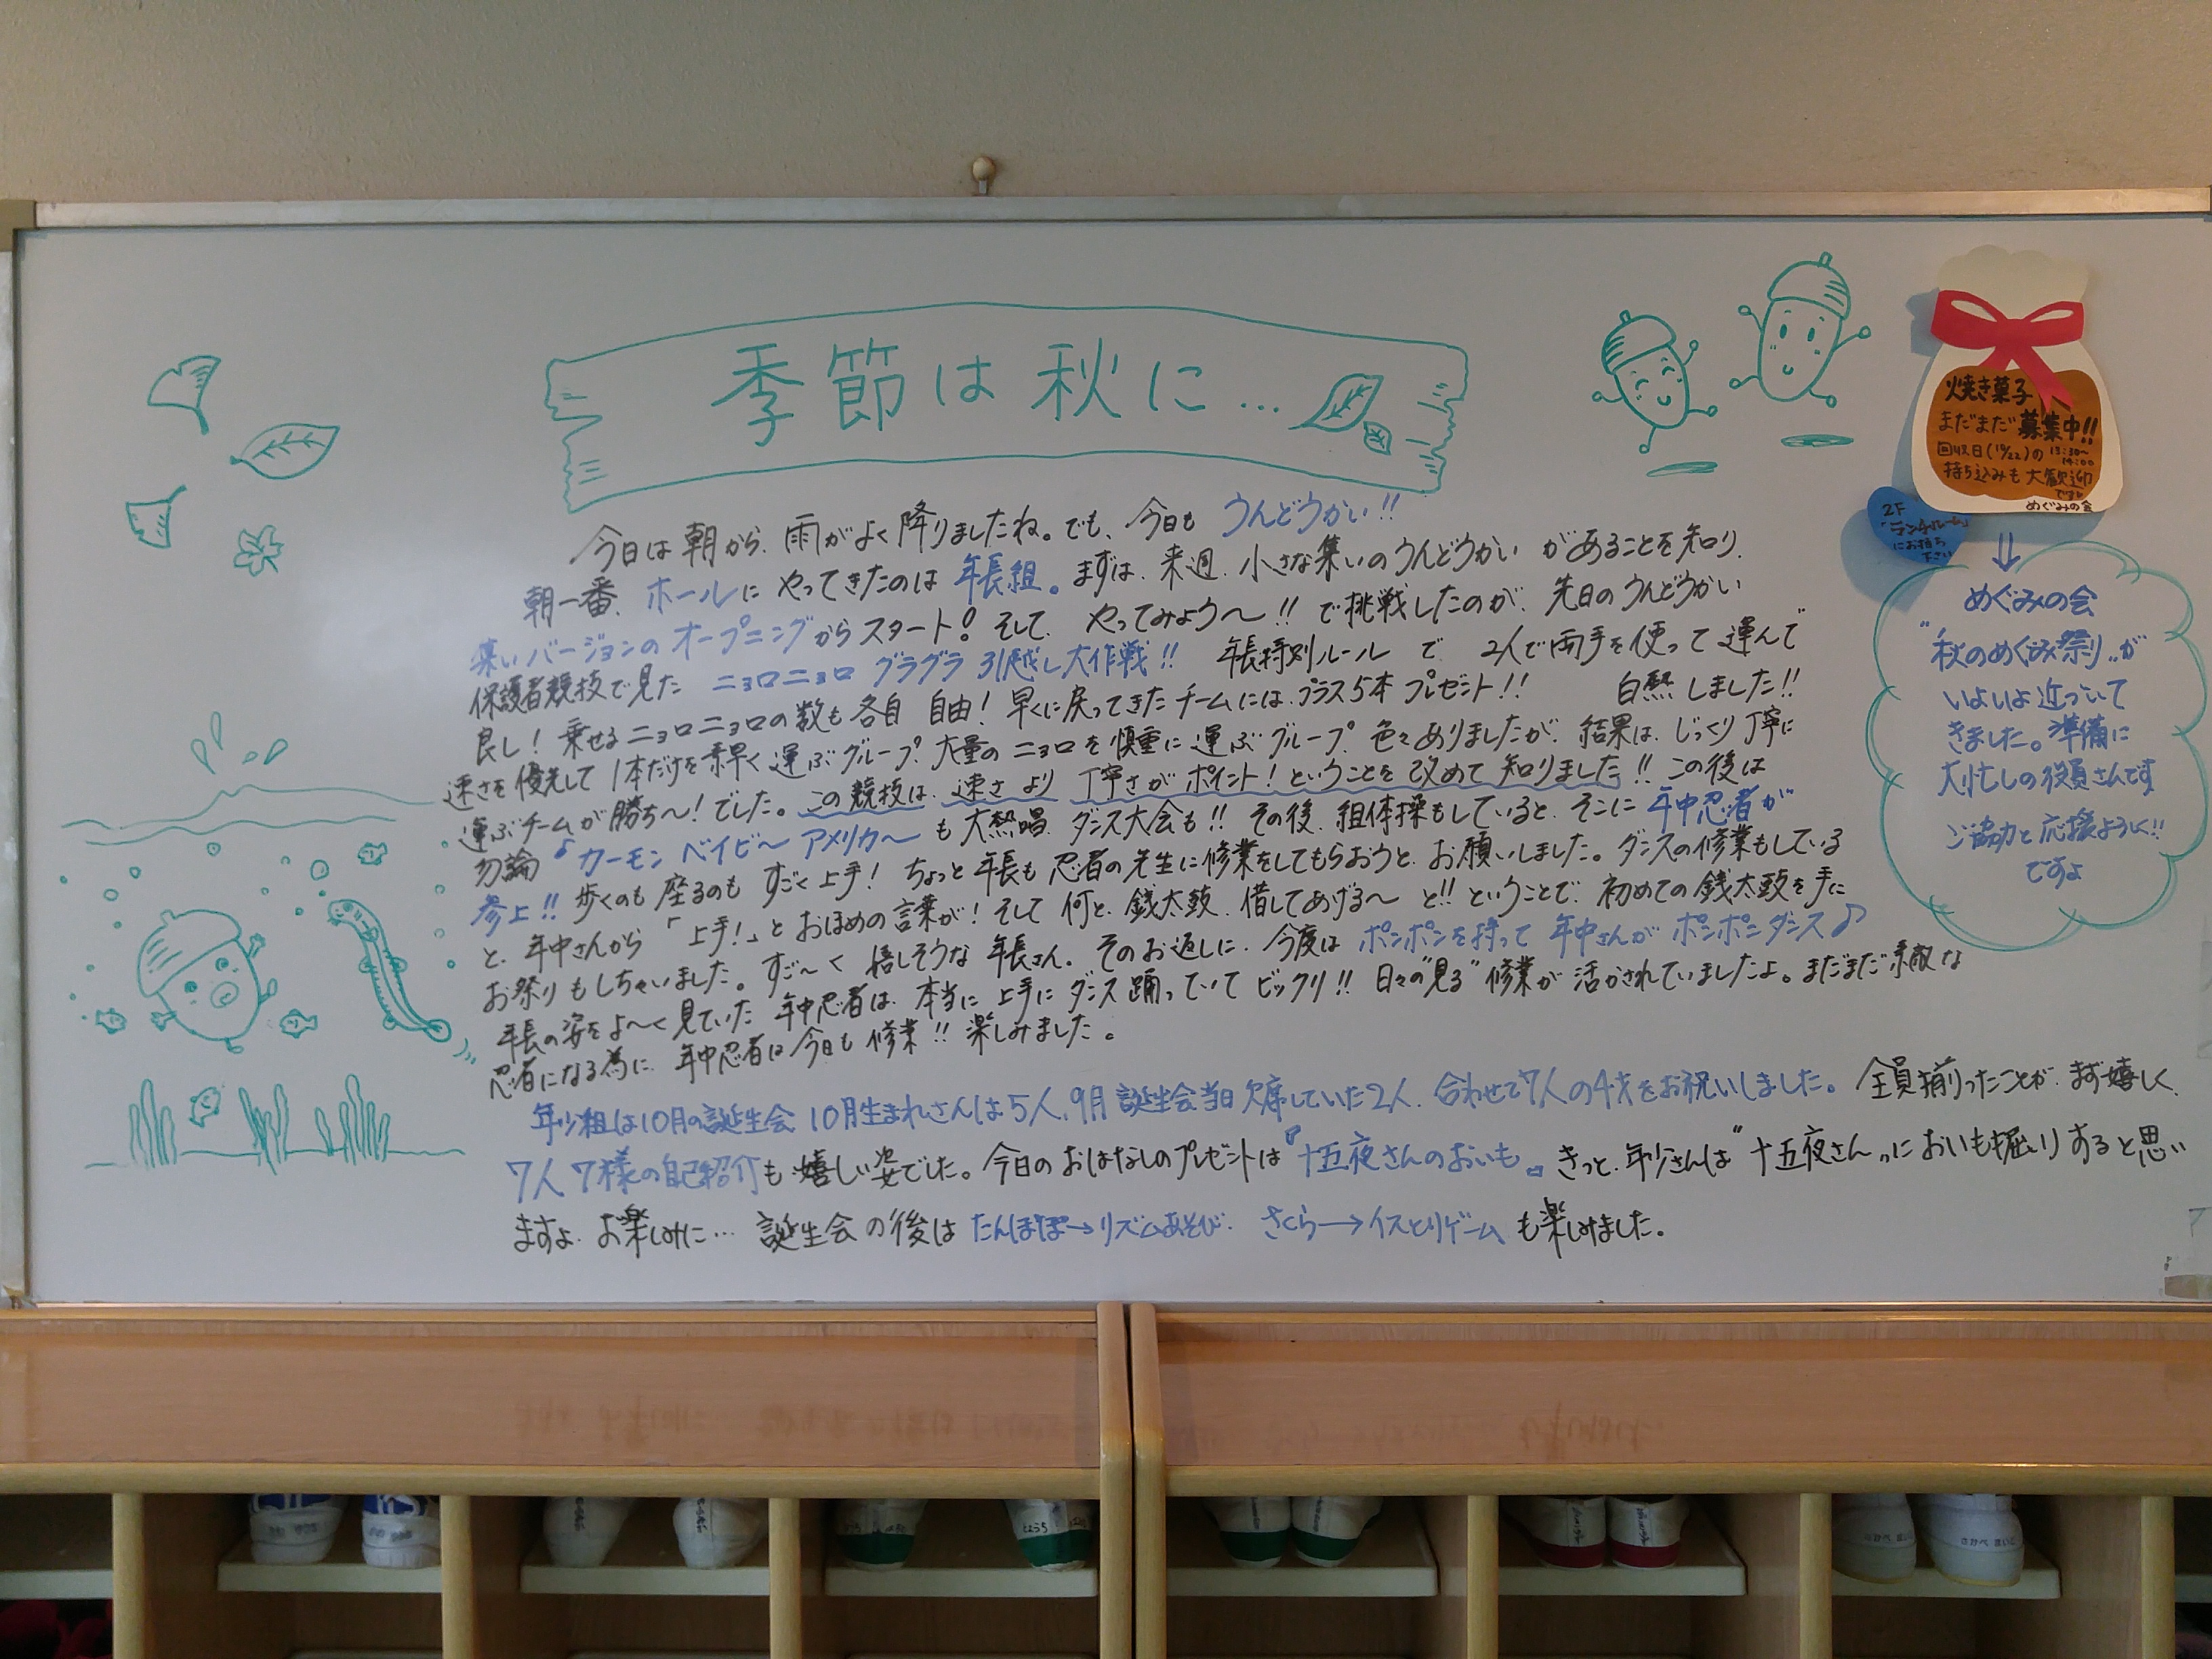 季節は秋に…
今日は朝から、雨がよく降りましたね。でも、今日も うんどうかい!!
朝一番、ホールに やってきたのは 年長組。まずは、来週、小さな集いのうんどうかい があることを知り、
集いバージョンのオープニングからスタート! そして、やってみよう〜!! で挑戦したのが、先日のうんどうかい
保護者競技で見た ニョロニョロ グラグラ 引越し大作戦!! 年長特別ルール で 2人で両手を使って運んで
良し! 乗せるニョロニョロの数も各自 自由! 早くに戻ってきたチームには、プラス5本 プレゼント!! 白熱しました!!
速さを優先して 1本だけを素早く運ぶグループ、大量のニョロを慎重に運ぶグループ、色々ありましたが、結果は、じっくり丁寧に
運ぶチームが勝ち〜!でした。この競技は、速さより 丁寧さがポイント!ということを改めて知りました!! この後は
勿論 ♪カーモン ベイビ〜 アメリカ〜 も 大熱唱、ダンス大会も!! その後、組体操もしていると、そこに 年中忍者が
参上!! 歩くのも 座るのも すごく上手! ちょっと年長も忍者の先生に修業をしてもらおうと、お願いしました。ダンスの修業もしている
と、年中さんから 「上手!」と おほめの言葉が! そして 何と、銭太鼓、借してあげる〜 と!! ということで、初めての銭太鼓を手に
お祭りもしちゃいました。すご〜く 嬉しそうな 年長さん。そのお返しに、今度は ポンポンを持って 年中さんが ポンポンダンス♪
年長の姿をよ〜く見ていた 年中忍者は、本当に上手に ダンス踊っていて ビックリ!! 日々の"見る"修業が 活かされていましたよ。まだまだ素敵な
忍者になる為に、年中忍者は今日も修業!! 楽しみました。
年少組は10月の誕生会、10月生まれさんは5人、9月誕生会当日欠席していた2人、合わせて7人の4才をお祝いしました。全員揃ったことが、まず嬉しく、
7人7様の自己紹介も嬉しい姿でした。今日のおはなしのプレゼントは『十五夜さんのおいも』きっと、年少さんは"十五夜さん"においも掘りすると思い
ますよ。お楽しみに… 誕生会の後は たんぽぽ→リズムあそび、さくら→イスとりゲームも楽しみました。
焼き菓子
まだまだ募集中!!
回収日(10/22)の 13:30〜
14:00
持ち込みも大歓迎
です
めぐみの会
2F
「ランチルーム」
にお持ち
下さい
⇓
めぐみの会
"秋のめぐみ祭り"が
いよいよ近づいて
きました。準備に
大忙しの役員さんです
ご協力と応援よろしく!!
ですよ
さかべ まいと